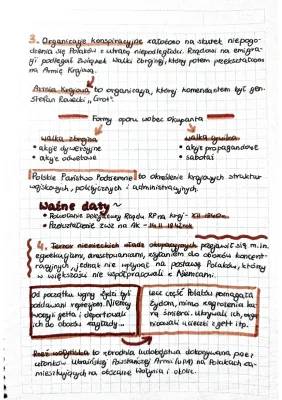 3. Organizacje konspiracyjne założono na skutek niepogo-
dzenia się Polaków z utratą niepodległości. Rządowi na emigra-
cji podlegał Związek Walki Zbrojnej, który potem przekształcono
na Armię Krajową.
Armia Krajowa to organizacja, której komendantem był gen.
Stefan Rowecki "Grot".
Formy oporu wobec okupanta
walka zbrojna
walka cywilna
• akcje dywersyjne
• akcje propagandowe
• akcje odwetowe
• sabotaż
Polskie Państwo Podziemne to określenie krajowych struktur
wojskowych, politycznych i administracyjnych.
Ważne daty~
• Powołanie Delegatury Rządu RP na kraj -
• Przekształcenie ZWZ na AK - 14.II.1942rok
4. Terror niemieckich władz okupacyjnych przejawiał się m.in.
egzekucjami, aresztowaniami, zsyłaniem do obozów koncent-
racyjnych, jednak nie wpłynął na postawę Polaków, którzy
w większości nie współpracowali z Niemcami.
Od początku wojny Żydzi byli
poddawani represjom. Niemcy
tworzyli getta i deportowali
ich do obozów zagłady...
lecz część Polaków pomagała
Żydom, mimo zagrożenia ka-
rą śmierci. Ukrywali ich, orga-
nizowali ucieczki z gett itp.
Rzeź wołyńska to zbrodnia ludobójstwa dokonywana przez
członków Ukraińskiej Powstańczej Armii (UPA) na Polakach za-
mieszkujących na obszarze Wołynia i okolic.